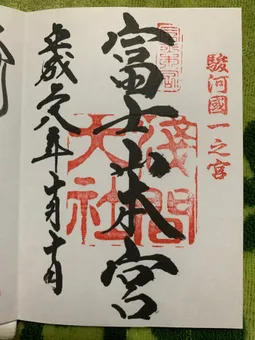 駿河國一之宮
富士山本宮
淺間
大社
平成二八年十月十日